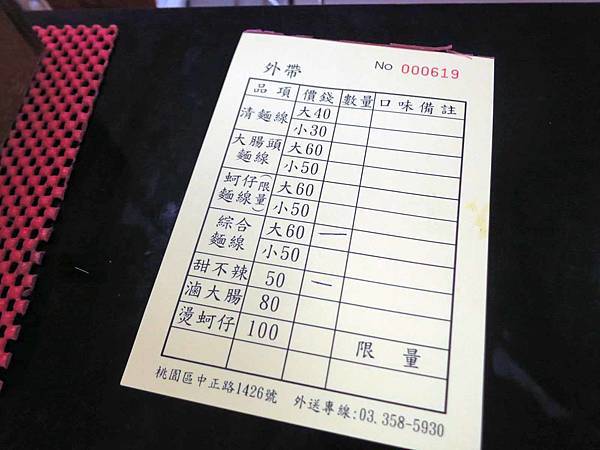 外帶 No 000619
品項 價錢 數量 口味備註
清麵線 大40
小30
大腸頭麵線 大60
小50
蚵仔麵線(限量) 大60
小50
綜合麵線 大60 一
小50
甜不辣 50 一
滷大腸 80
燙蚵仔 100
限量
桃園區中正路1426號 外送專線:03.358-5930